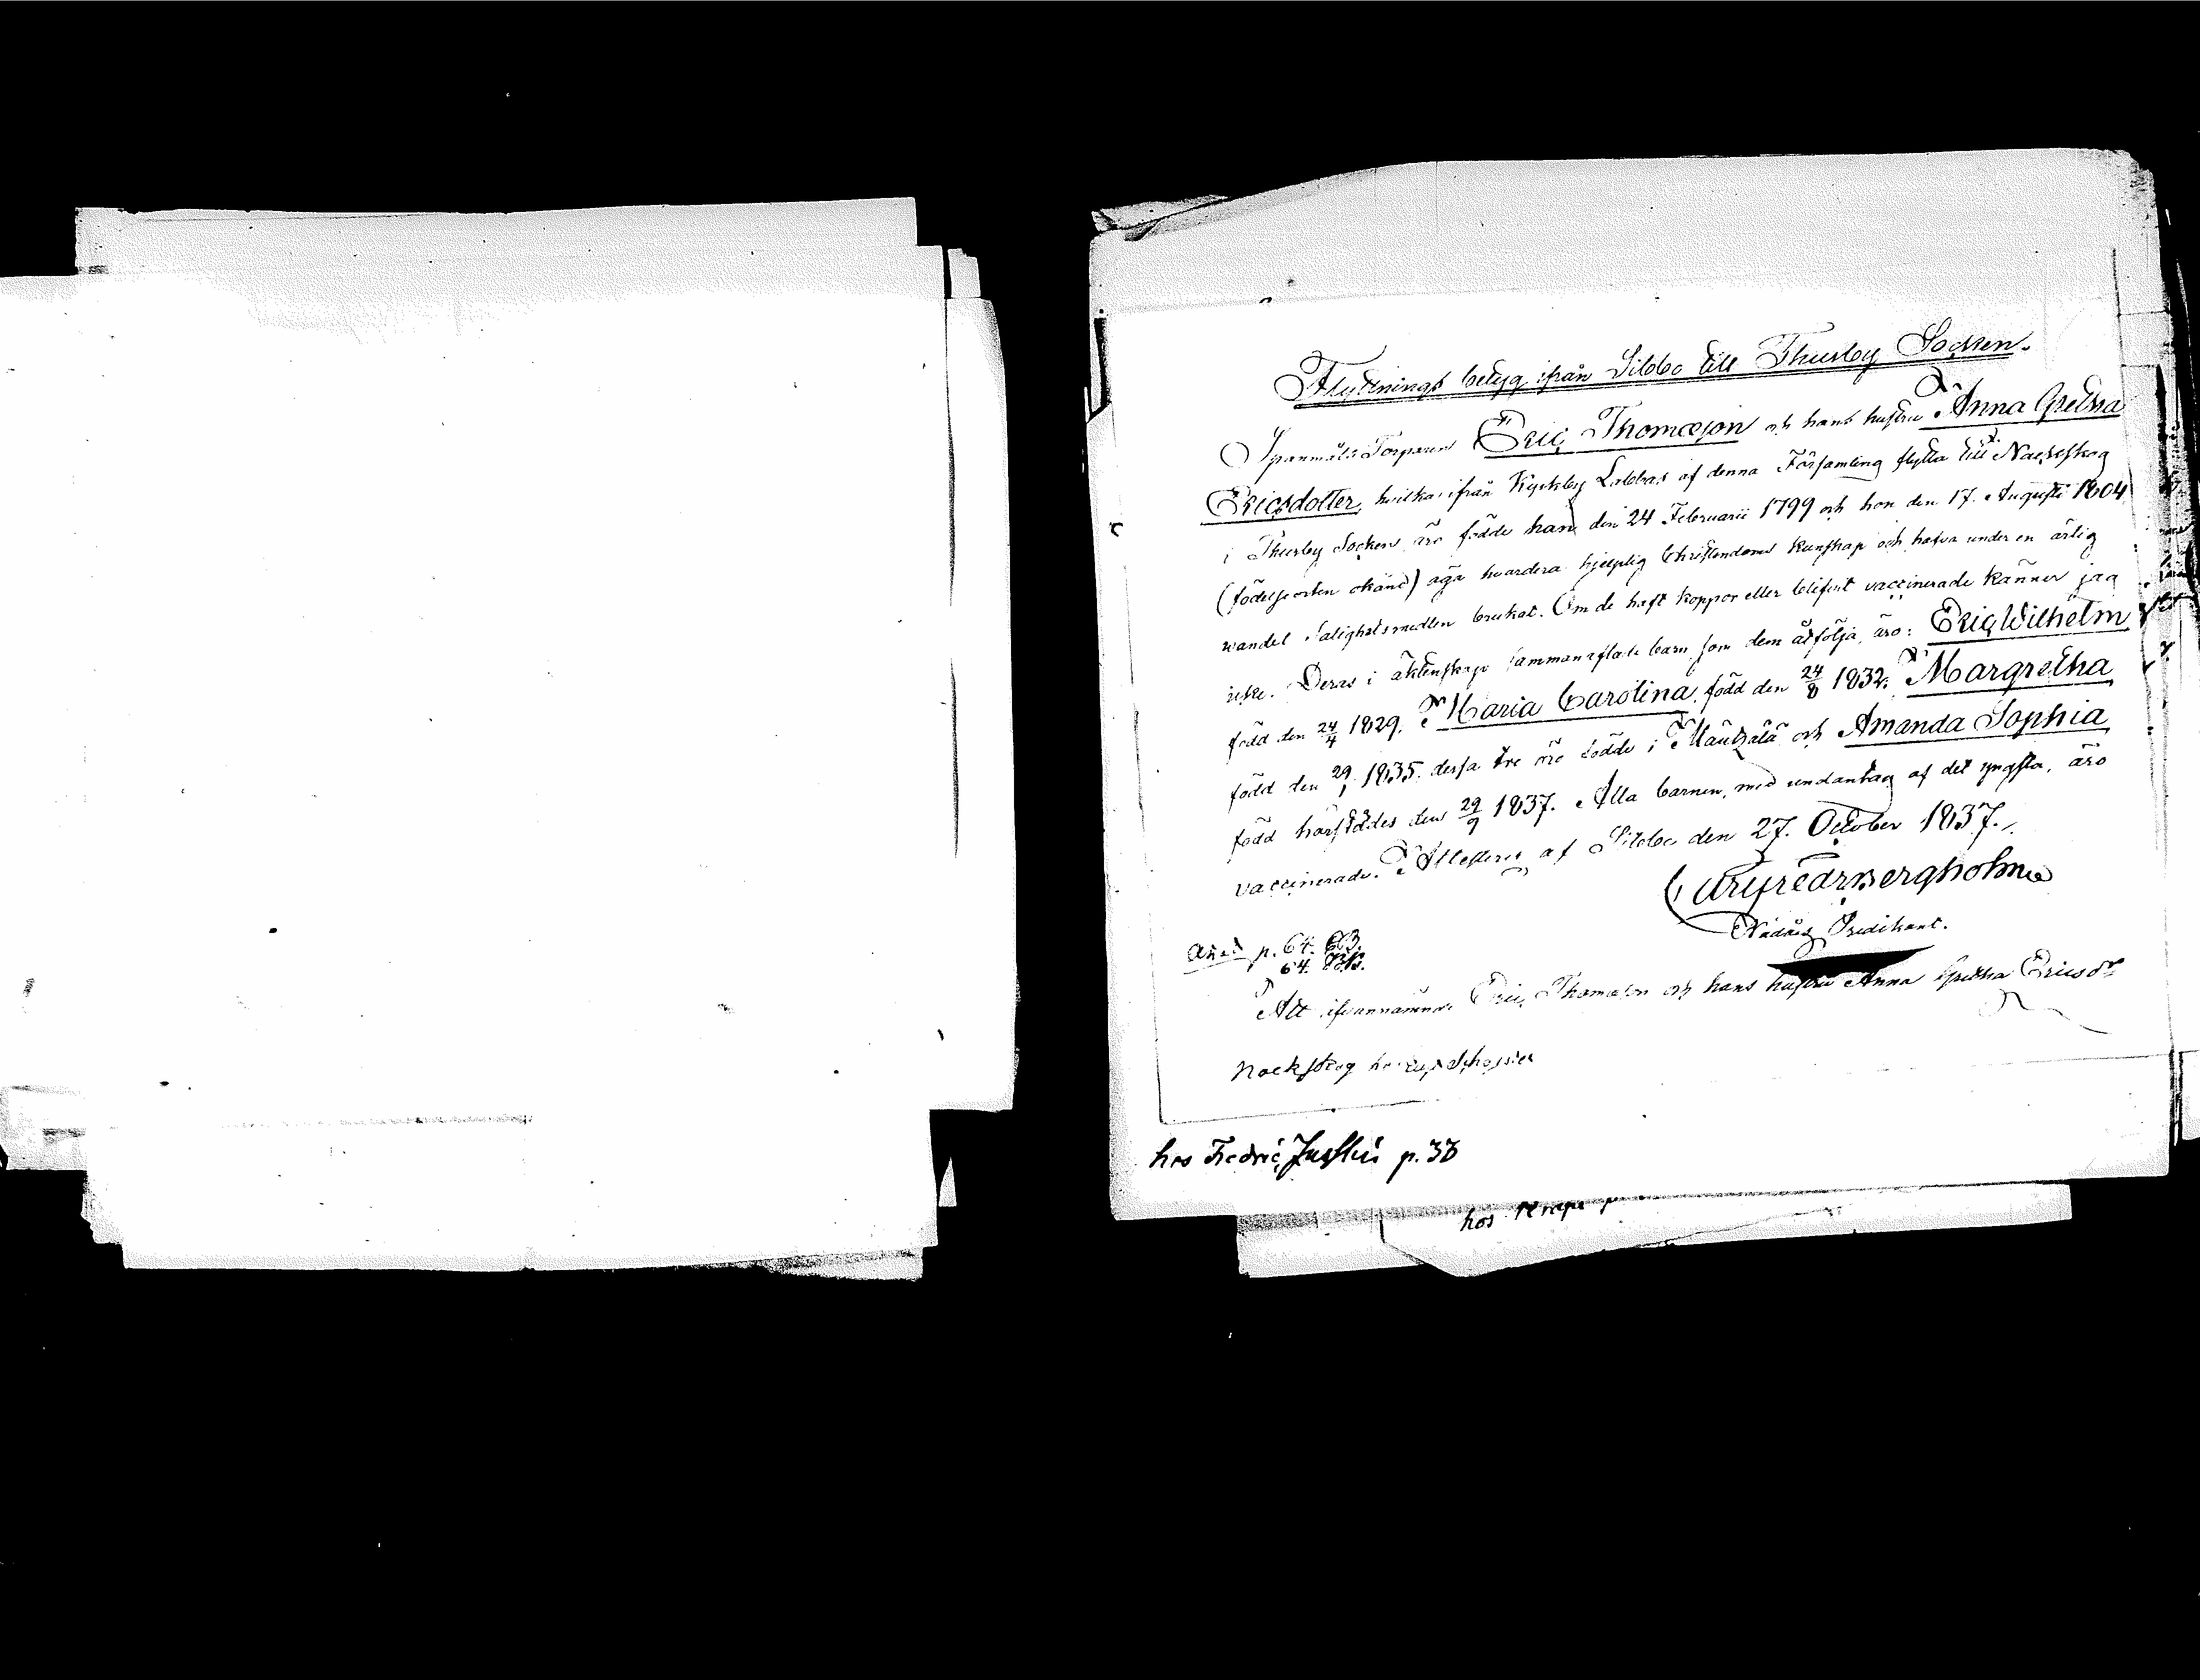 Flyttnings betyg ifrån Sibbo till Thusby Socken.
Spanmåls Torparen Eric Thomæson och hans hustru Anna Gretha
Ericsdotter, hvilka ifrån Kyrkby Labbas af denna Församling flytta till Nackskog
i Thusby Socken äro födde han den 24 Februarii 1799 och hon den 17. Augusti 1804
(födelseorten okänd) äga hvardera hjelplig Christendoms kunskap och hafva under en ärlig
wandel salighetsmedlen brukat. Om de haft koppor eller blifvit vaccinerade känner jag
icke. Deras i äktenskap sammanaflade barn som dem åtfölja, äro: Eric Wilhelm
född den 24/4 1829. Maria Carolina född den 24/8 1832. Margretha
född den 29/1 1835. dessa tre äro födde i Mäntzälä och Amanda Sophia
född härstädes den 29/9 1837. Alla barnen, med undantag af det yngsta, äro
vaccinerade. Attesteras af Sibbo den 27. October 1837.
Carl Fredr Bergholm
Nådårs Predikant.
p. 64.
64.
Att ofvannämnde Eric Thomæson och hans hustru Anna Gretha Ericsdr
Nackskog
hos Fredric p. 33
hos